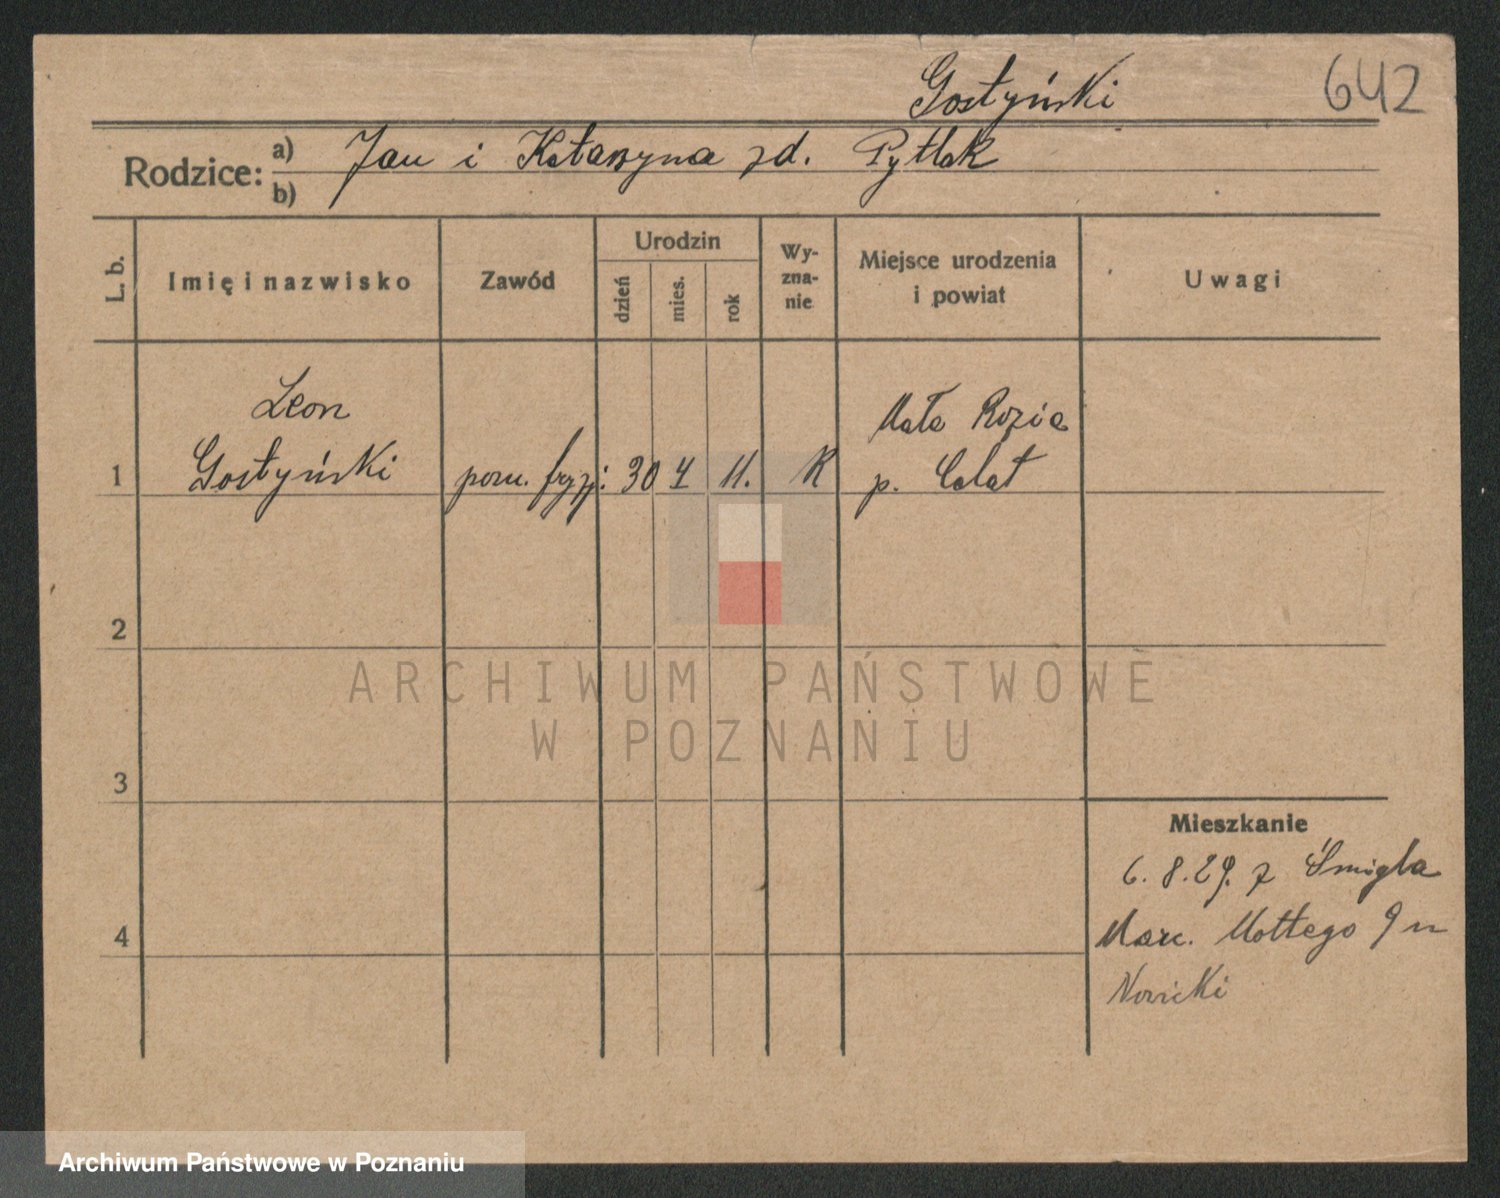 Gostyński
642
Rodzice:
a) Jan i Katarzyna zd. Pytlak
b)
L. b.
Imię i nazwisko
Zawód
Urodzin
dzień
mies.
rok
Wy-
zna-
nie
Miejsce urodzenia
i powiat
Uwagi
Leon
Gostyński
1
pom. fryzj:
30
11.
K
Mała
p.
2
3
4
Mieszkanie
6. 8. 29. z Śmigla
Marc. Mottego 9
Nowicki
ARCHIWUM PAŃSTWOWE
W POZNANIU
Archiwum Państwowe w Poznaniu